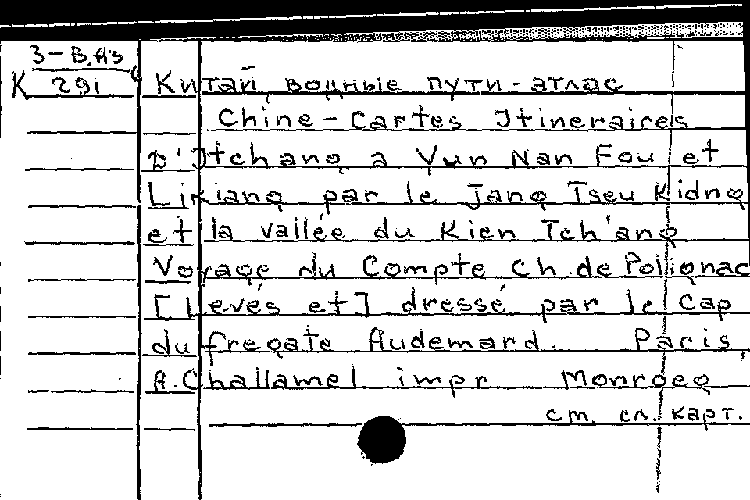 3-В.Аз
К 29i
Китай, водные пути-атлас
Chine-Cartes Itineraires
D'Itchang a Yun Nan Fou et
Likiang par le Jang Tseu Kidng
et la vallée du Kien Tch'ang
Voyage du Compte Ch. de Polignac
[Levés et] dressé par le Cap
du fregate Audemard. Paris,
A. Challamel impr
ст. сл. карт.